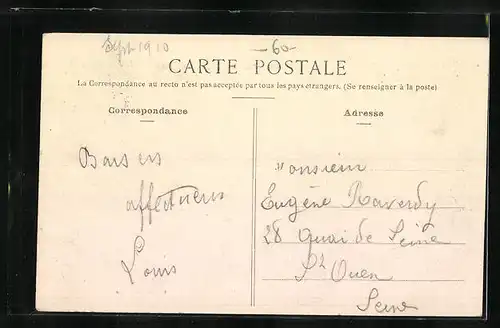 Sept 1910
-60-
CARTE POSTALE
La Correspondance au recto n'est pas acceptée par tous les pays étrangers. (Se renseigner à la poste)
Correspondance
Adresse
Baisers
affectueux
Louis
Monsieur
Eugène Raverdy
28 Quai de Seine
St Ouen
Seine